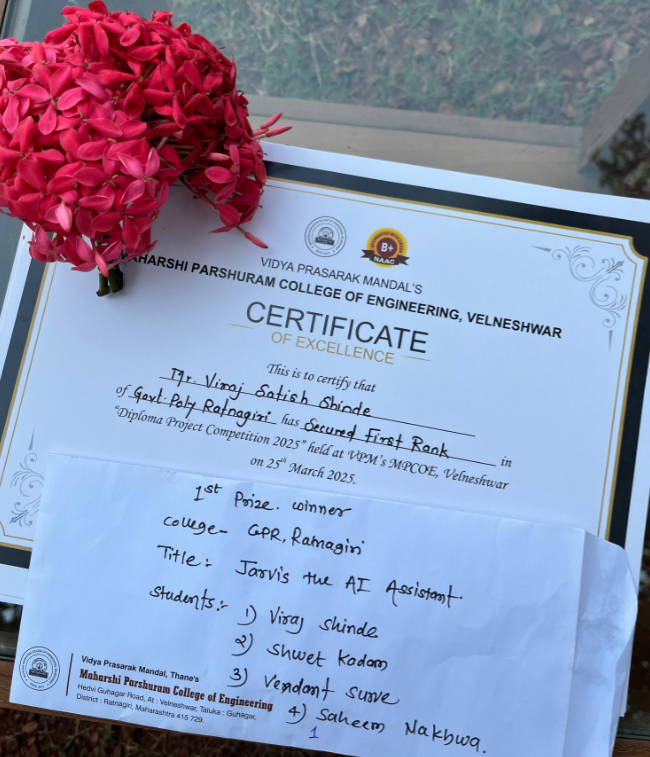 B+
NAAC
VIDYA PRASARAK MANDAL'S
MAHARSHI PARSHURAM COLLEGE OF ENGINEERING, VELNESHWAR
CERTIFICATE
OF EXCELLENCE
This is to certify that
Mr. Viraj Satish Shinde
of Govt. Poly Ratnagiri has Secured First Rank in
"Diploma Project Competition 2025" held at VPM's MPCOE, Velneshwar
on 25th March 2025.
1st Prize. winner
College- GPR, Ratnagiri
Title:- Jarvis the AI Assistant
Students:- 1) Viraj Shinde
2) Shwet Kadam
3) Vendant Surve
4) Saheem Nakhwa.
Vidya Prasarak Mandal, Thane's
Maharshi Parshuram College of Engineering
Hedvi Guhagar Road, At : Velneshwar, Taluka : Guhagar,
District : Ratnagiri, Maharashtra 415 729.
1